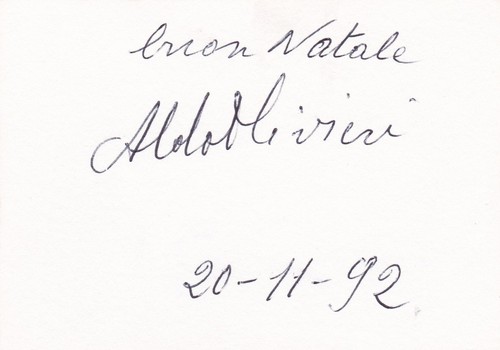 buon Natale
Aldo Olivieri
20-11-92